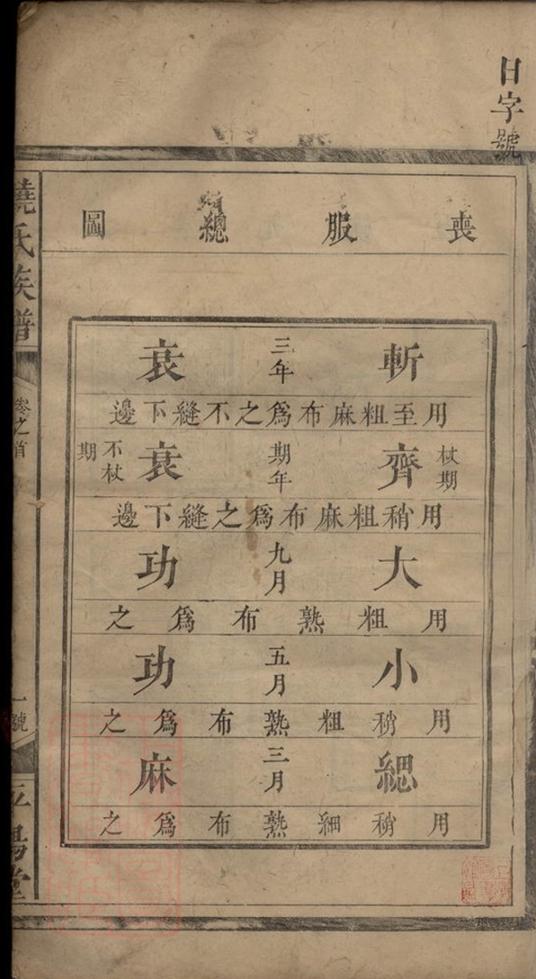 日字號
喪服總圖
斬三年衰
用至粗麻布為之不縫下邊
杖期齊期年衰不杖期
用稍粗麻布為之縫下邊
大九月功
用粗熟布為之
小五月功
用稍粗熟布為之
緦三月麻
用稍細熟布為之
饒氏族譜
卷之首
一號